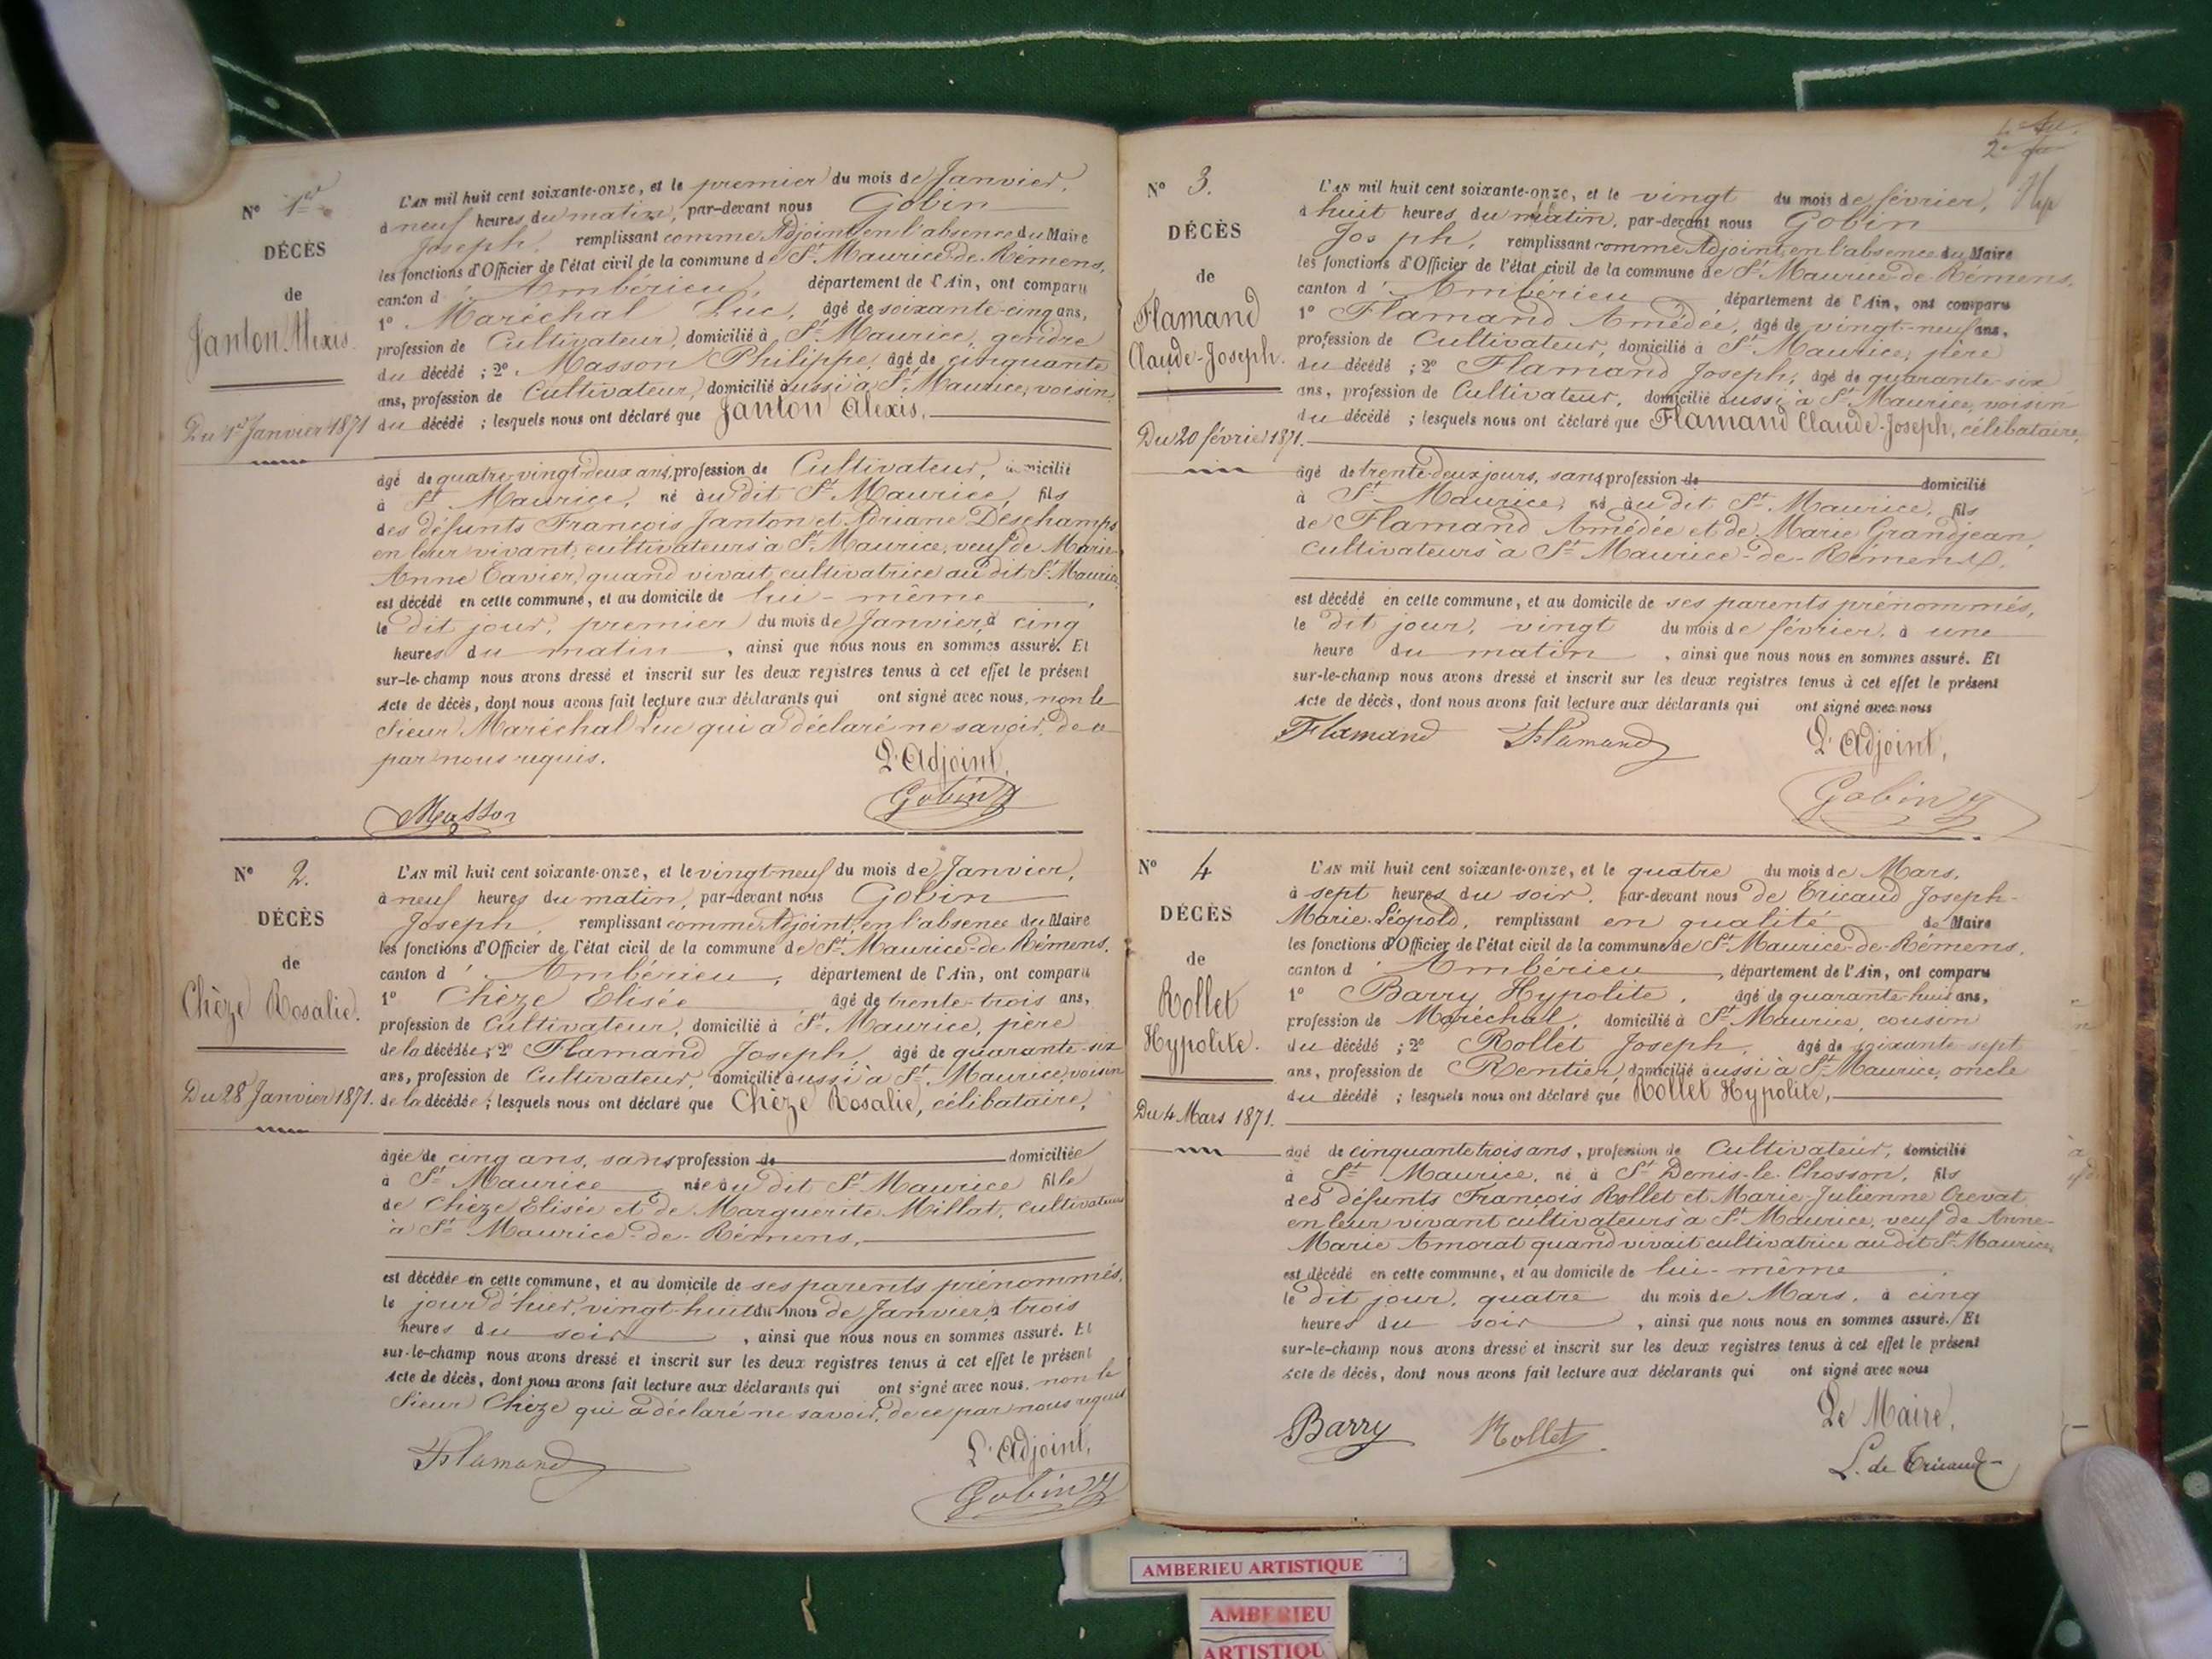 N° 1er
DÉCÈS
de
Janton Alexis.
Du 1er Janvier 1871
L'AN mil huit cent soixante-onze, et le premier du mois de Janvier,
à neuf heures du matin, par-devant nous Gobin
Joseph, remplissant comme Adjoint, en l'absence du Maire
les fonctions d'Officier de l'état civil de la commune de St Maurice-de-Rémens,
canton d'Ambérieu, département de l'Ain, ont comparu
1° Maréchal Luc, âgé de soixante-cinq ans,
profession de Cultivateur, domicilié à St Maurice, gendre
du décédé ; 2° Masson Philippe, âgé de cinquante
ans, profession de Cultivateur, domicilié aussi à St Maurice, voisin
du décédé ; lesquels nous ont déclaré que Janton Alexis,
âgé de quatre-vingt-deux ans, profession de Cultivateur, domicilié
à St Maurice, né au dit St Maurice, fils
des défunts François Janton et Adriane Deschamps
en leur vivant, cultivateurs à St Maurice, veuf de Marie-
Anne Tavier, quand vivait cultivatrice au dit St Maurice,
est décédé en cette commune, et au domicile de lui-même,
le dit jour, premier du mois de Janvier, à cinq
heures du matin, ainsi que nous nous en sommes assuré. Et
sur-le-champ nous avons dressé et inscrit sur les deux registres tenus à cet effet le présent
Acte de décès, dont nous avons fait lecture aux déclarants qui ont signé avec nous, non le
Sieur Maréchal Luc qui a déclaré ne savoir, de ce
par nous requis.
L'Adjoint,
Masson Gobin J
N° 2.
DÉCÈS
de
Chèze Rosalie.
Du 28 Janvier 1871.
L'AN mil huit cent soixante-onze, et le vingt-neuf du mois de Janvier,
à neuf heures du matin, par-devant nous Gobin
Joseph, remplissant comme Adjoint, en l'absence du Maire
les fonctions d'Officier de l'état civil de la commune de St Maurice-de-Rémens,
canton d'Ambérieu, département de l'Ain, ont comparu
1° Chèze Elisée âgé de trente-trois ans,
profession de Cultivateur, domicilié à St Maurice, père
de la décédée ; 2° Flamand Joseph, âgé de quarante-six
ans, profession de Cultivateur, domicilié aussi à St Maurice, voisin
de la décédée ; lesquels nous ont déclaré que Chèze Rosalie, célibataire,
âgée de cinq ans, sans profession de domiciliée
à St Maurice née au dit St Maurice fille
de Chèze Elisée et de Marguerite Millat, cultivateurs
à St Maurice-de-Rémens,
est décédée en cette commune, et au domicile de ses parents prénommés,
le jour d'hier, vingt-huit du mois de Janvier, à trois
heures du soir, ainsi que nous nous en sommes assuré. Et
sur-le-champ nous avons dressé et inscrit sur les deux registres tenus à cet effet le présent
Acte de décès, dont nous avons fait lecture aux déclarants qui ont signé avec nous, non le
Sieur Chèze qui a déclaré ne savoir, de ce par nous requis
L'Adjoint,
Flamand Gobin J
N° 3.
DÉCÈS
de
Flamand
Claude-Joseph.
Du 20 février 1871.
L'AN mil huit cent soixante-onze, et le vingt du mois de février,
à huit heures du matin, par-devant nous Gobin
Jos ph, remplissant comme Adjoint, en l'absence du Maire
les fonctions d'Officier de l'état civil de la commune de St Maurice-de-Rémens,
canton d'Ambérieu département de l'Ain, ont comparu
1° Flamand Amédée, âgé de vingt-neuf ans,
profession de Cultivateur, domicilié à St Maurice, père
du décédé ; 2° Flamand Joseph, âgé de quarante-six
ans, profession de Cultivateur, domicilié aussi à St Maurice, voisin
du décédé ; lesquels nous ont déclaré que Flamand Claude-Joseph, célibataire,
âgé de trente-deux jours, sans profession de domicilié
à St Maurice, né au dit St Maurice, fils
de Flamand Amédée et de Marie Grandjean,
cultivateurs à St Maurice-de-Rémens.
est décédé en cette commune, et au domicile de ses parents prénommés,
le dit jour, vingt du mois de février, à une
heure du matin, ainsi que nous nous en sommes assuré. Et
sur-le-champ nous avons dressé et inscrit sur les deux registres tenus à cet effet le présent
Acte de décès, dont nous avons fait lecture aux déclarants qui ont signé avec nous
Flamand Flamand L'Adjoint,
Gobin J
N° 4
DÉCÈS
de
Rollet
Hypolite.
Du 4 Mars 1871.
L'AN mil huit cent soixante-onze, et le quatre du mois de Mars,
à sept heures du soir, par-devant nous de Tricaud Joseph-
Marie-Léopold, remplissant en qualité de Maire
les fonctions d'Officier de l'état civil de la commune de St Maurice-de-Rémens,
canton d'Ambérieu, département de l'Ain, ont comparu
1° Barry Hypolite, âgé de quarante-huit ans,
profession de Maréchal, domicilié à St Maurice, cousin
du décédé ; 2° Rollet Joseph, âgé de soixante-sept
ans, profession de Rentier, domicilié aussi à St Maurice, oncle
du décédé ; lesquels nous ont déclaré que Rollet Hypolite,
âgé de cinquante trois ans, profession de Cultivateur, domicilié
à St Maurice, né à St Denis-le-Chosson, fils
des défunts François Rollet et Marie-Julienne Crevat
en leur vivant cultivateurs à St Maurice, veuf de Anne-
Marie Amorat quand vivait cultivatrice au dit St Maurice,
est décédé en cette commune, et au domicile de lui-même.
le dit jour, quatre du mois de Mars, à cinq
heures du soir, ainsi que nous nous en sommes assuré. Et
sur-le-champ nous avons dressé et inscrit sur les deux registres tenus à cet effet le présent
Acte de décès, dont nous avons fait lecture aux déclarants qui ont signé avec nous
Le Maire,
Barry Rollet L. de Tricaud
AMBERIEU ARTISTIQUE
AMBERIEU
ARTISTIQU